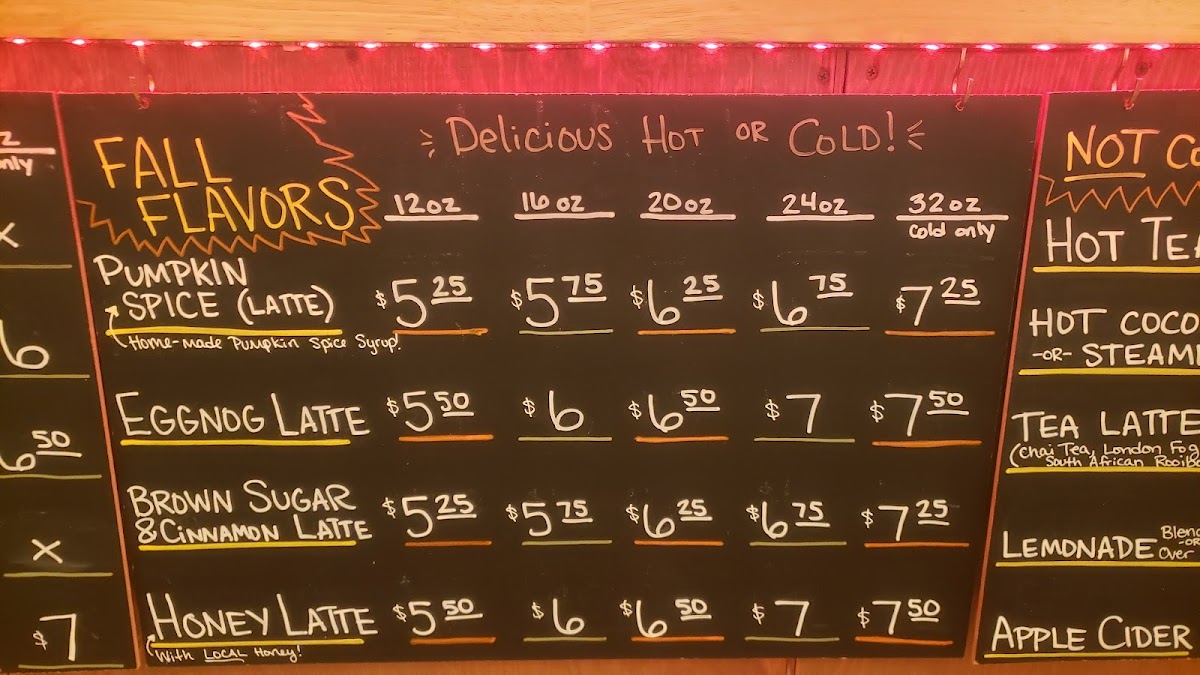 z
only
x
6
6 50
x
$7
FALL
FLAVORS
Delicious HOT OR COLD!
12oz 16oz 20oz 24oz 32oz
cold only
PUMPKIN
SPICE (LATTE) $5 25 $5 75 $6 25 $6 75 $7 25
Home-made Pumpkin Spice Syrup!
EGGNOG LATTE $5 50 $6 $6 50 $7 $7 50
BROWN SUGAR
& CINNAMON LATTE $5 25 $5 75 $6 25 $6 75 $7 25
HONEY LATTE $5 50 $6 $6 50 $7 $7 50
With LOCAL Honey!
NOT CO
HOT TEA
HOT COCO
-OR- STEAM
TEA LATTE
(Chai Tea, London Fog
South African Rooib
LEMONADE Blend
-OR-
Over
APPLE CIDER